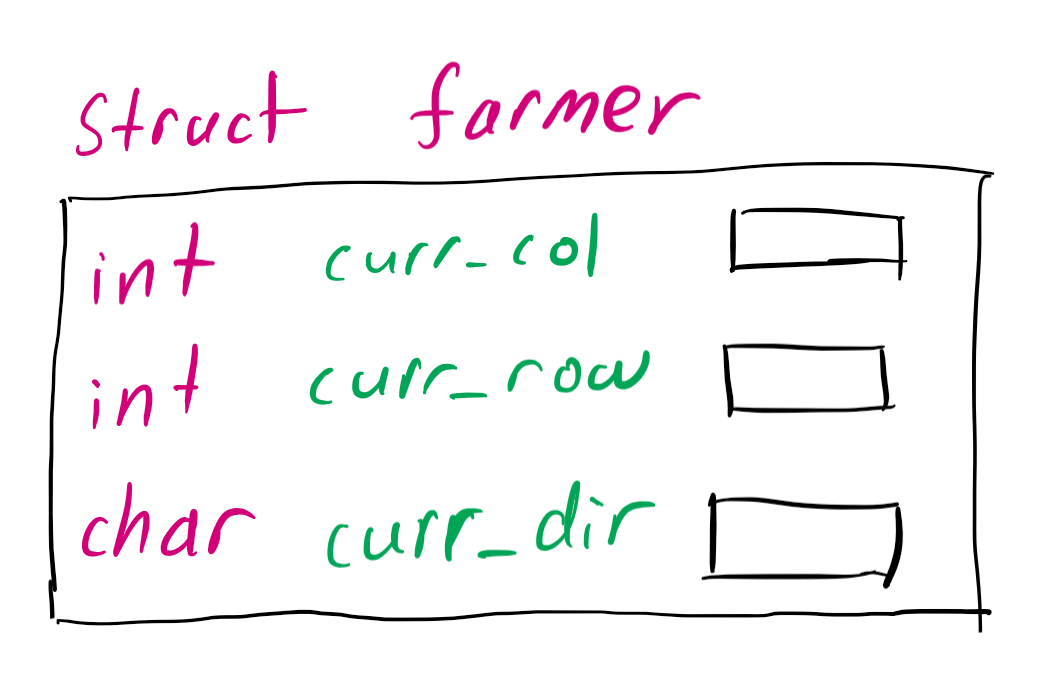 struct farmer
int curr_col
int curr_row
char curr_dir